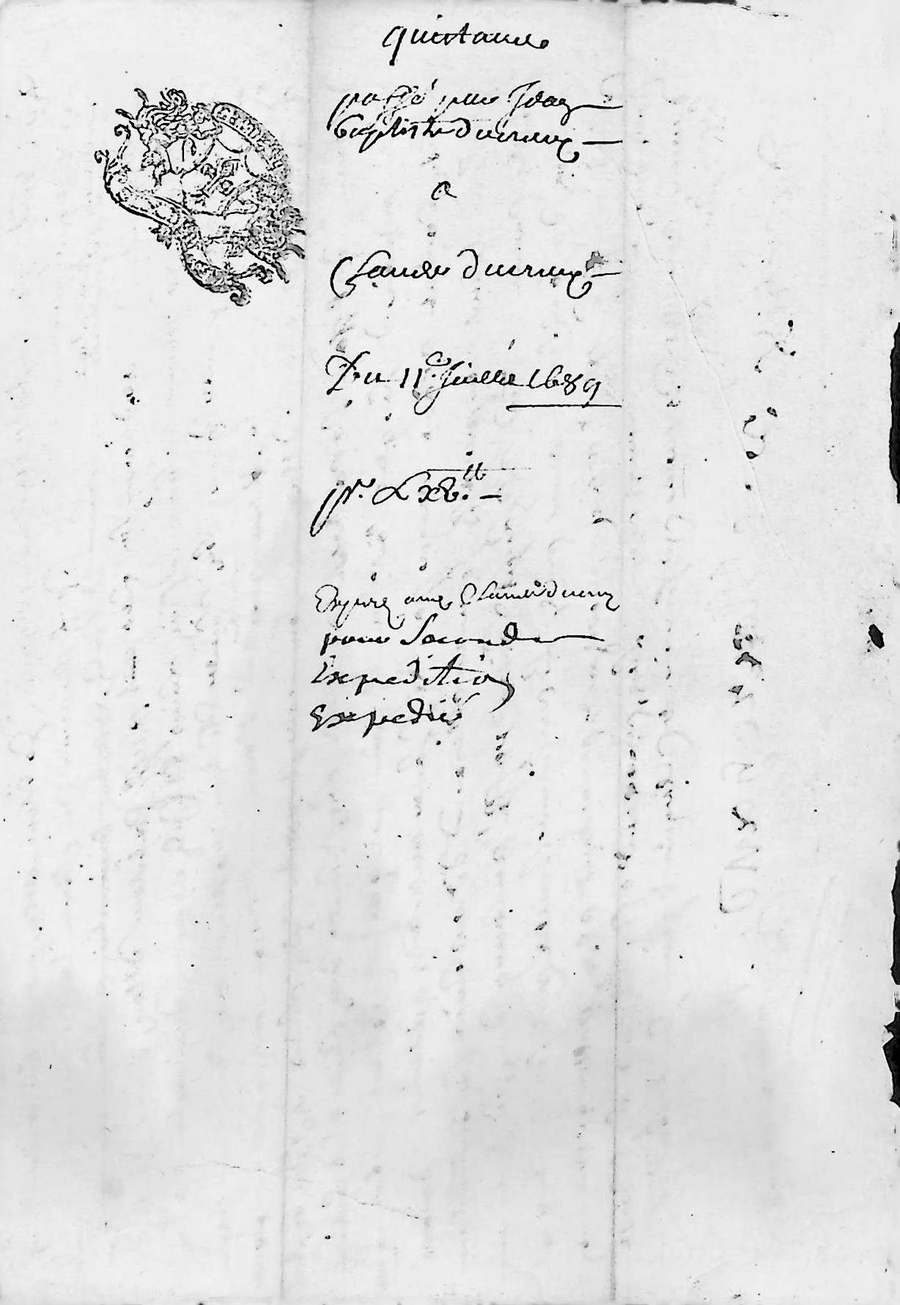 quictance
passé par Jean
baptiste ducreux
a
Claude ducreux
Du 11e Juillet 1689
pr. Lxv.tt
Claude
pour Seconde
Expedition
Expedié